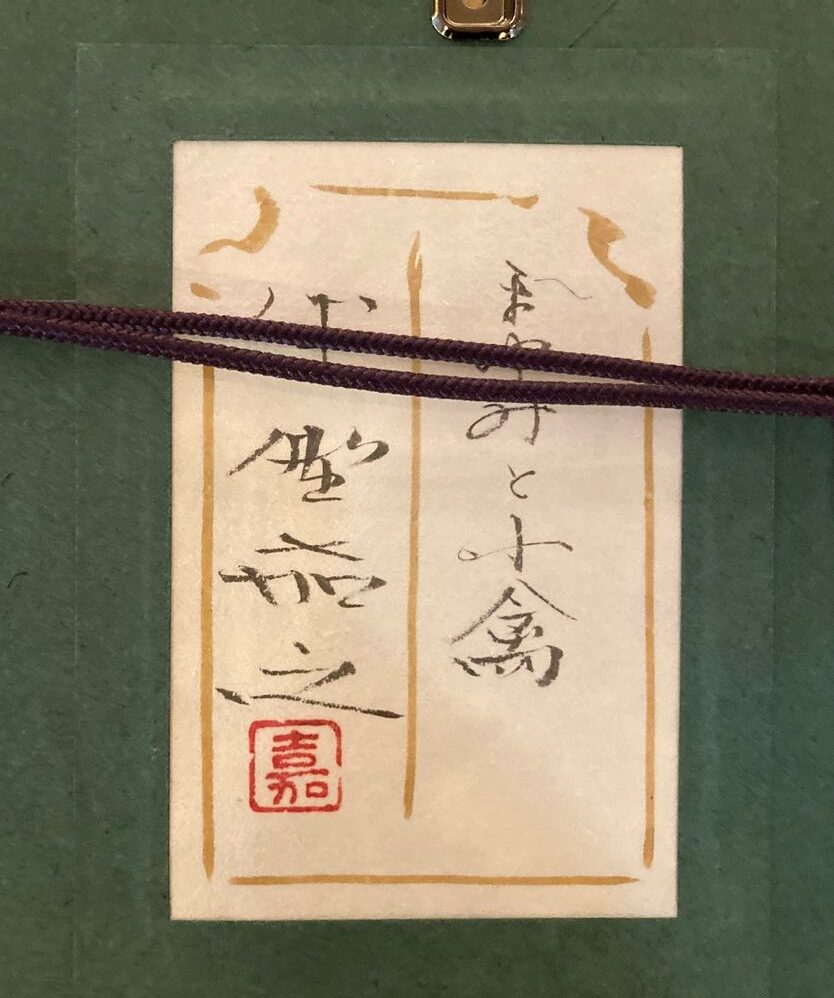 まゆみと小禽
野嘉之
嘉